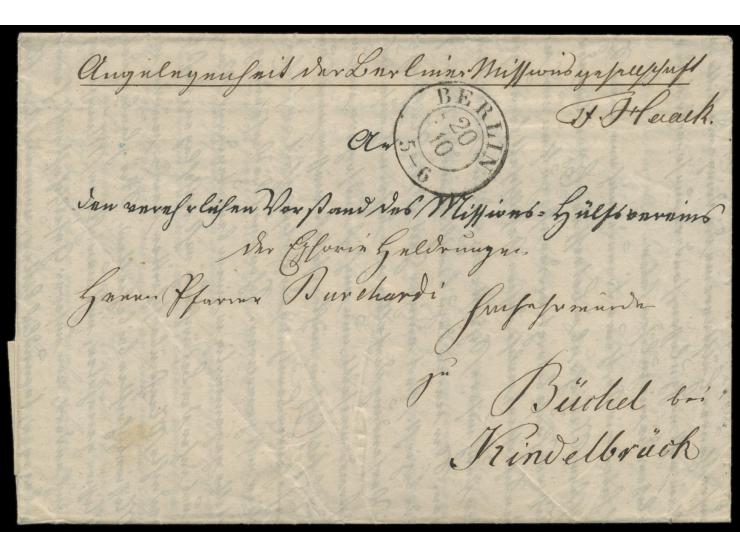 Angelegenheit der Berliner Missionsgesellschaft
Haack.
BERLIN
20
10
5-6
An
den verehrlichen Vorstand des Missions-Hülfsvereins
der Ephorie Heldrungen
Herrn Pfarrer Burchardi Hochehrwürden
zu
Büchel bei
Kindelbrück